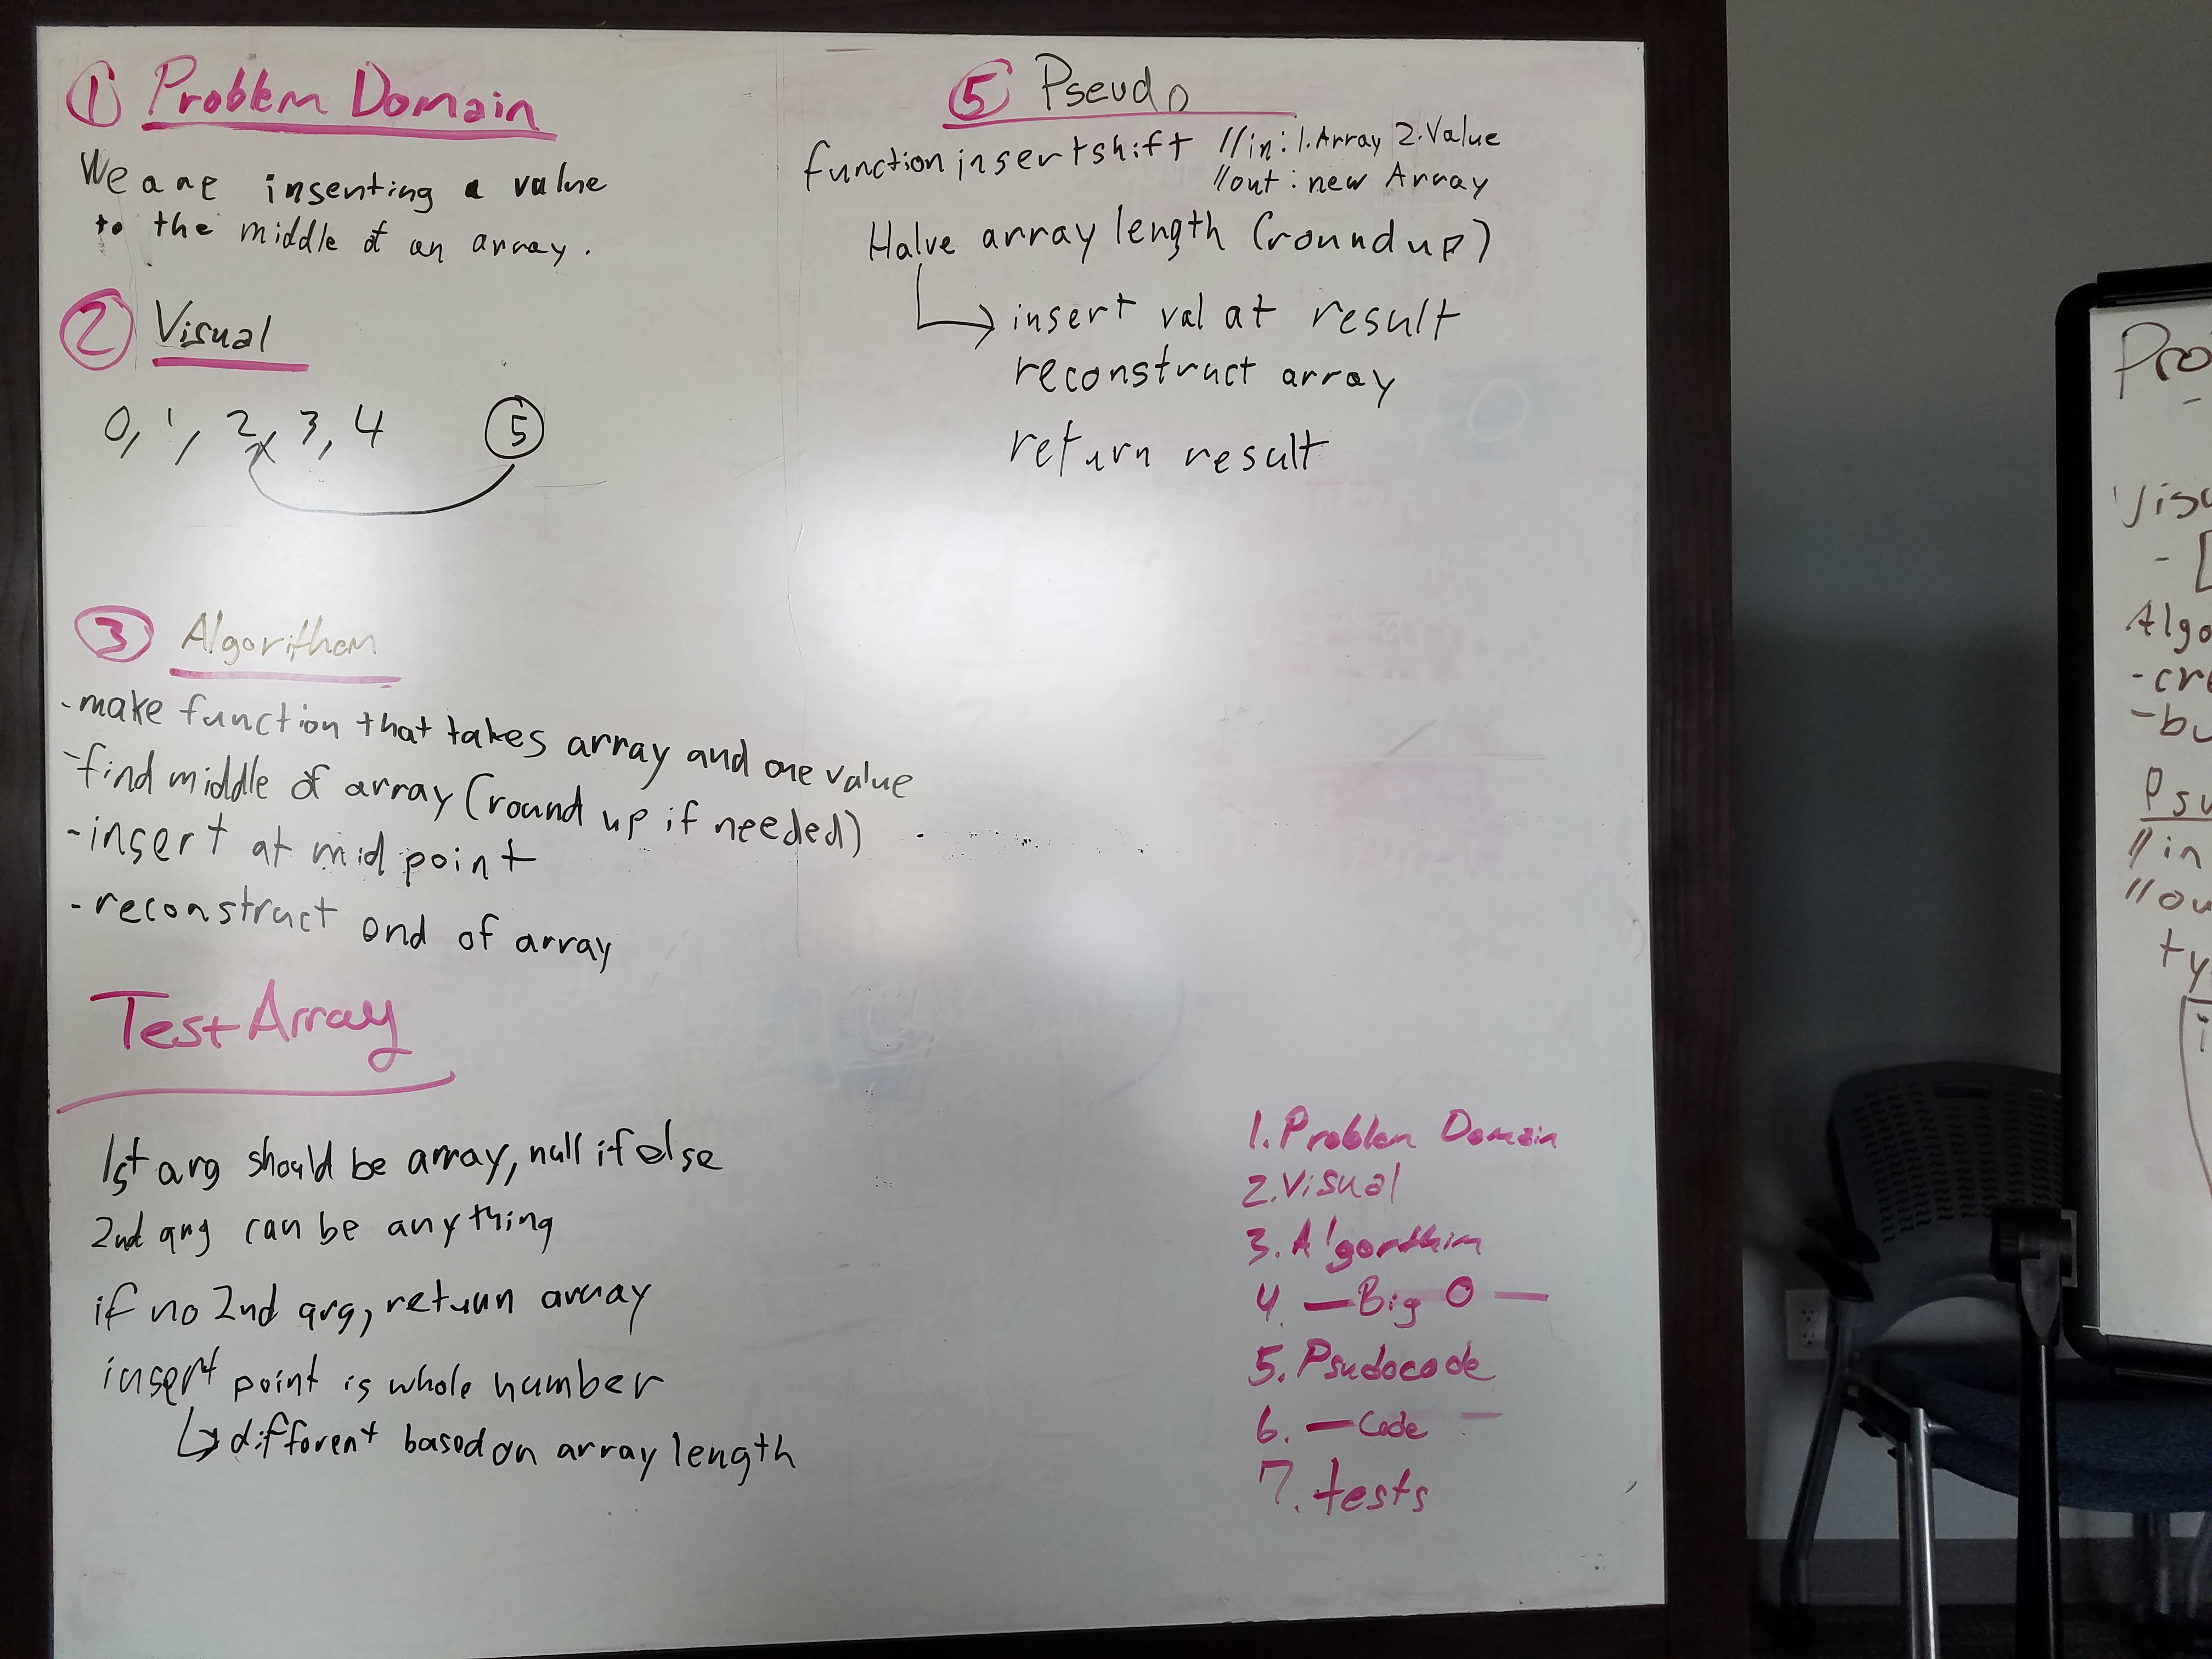 ① Problem Domain
We are inserting a value
to the middle of an array.
② Visual
0, 1, 2, 3, 4 ⑤
③ Algorithem
-make function that takes array and one value
-find middle of array (round up if needed)
-insert at mid point
-reconstruct end of array
Test Array
1st arg should be array, null if else
2nd arg can be anything
if no 2nd arg, return array
insert point is whole number
↳ different based on array length
⑤ Pseudo
function insertshift //in: 1.Array 2.Value
//out: new Array
Halve array length (round up)
↳ insert val at result
reconstruct array
return result
1. Problem Domain
2. Visual
3. Algorthim
4. — Big O —
5. Psudocode
6. — Code —
7. tests
Pro
Visu
- [
Algo
- cre
- bu
Psu
// in
// ou
ty
i